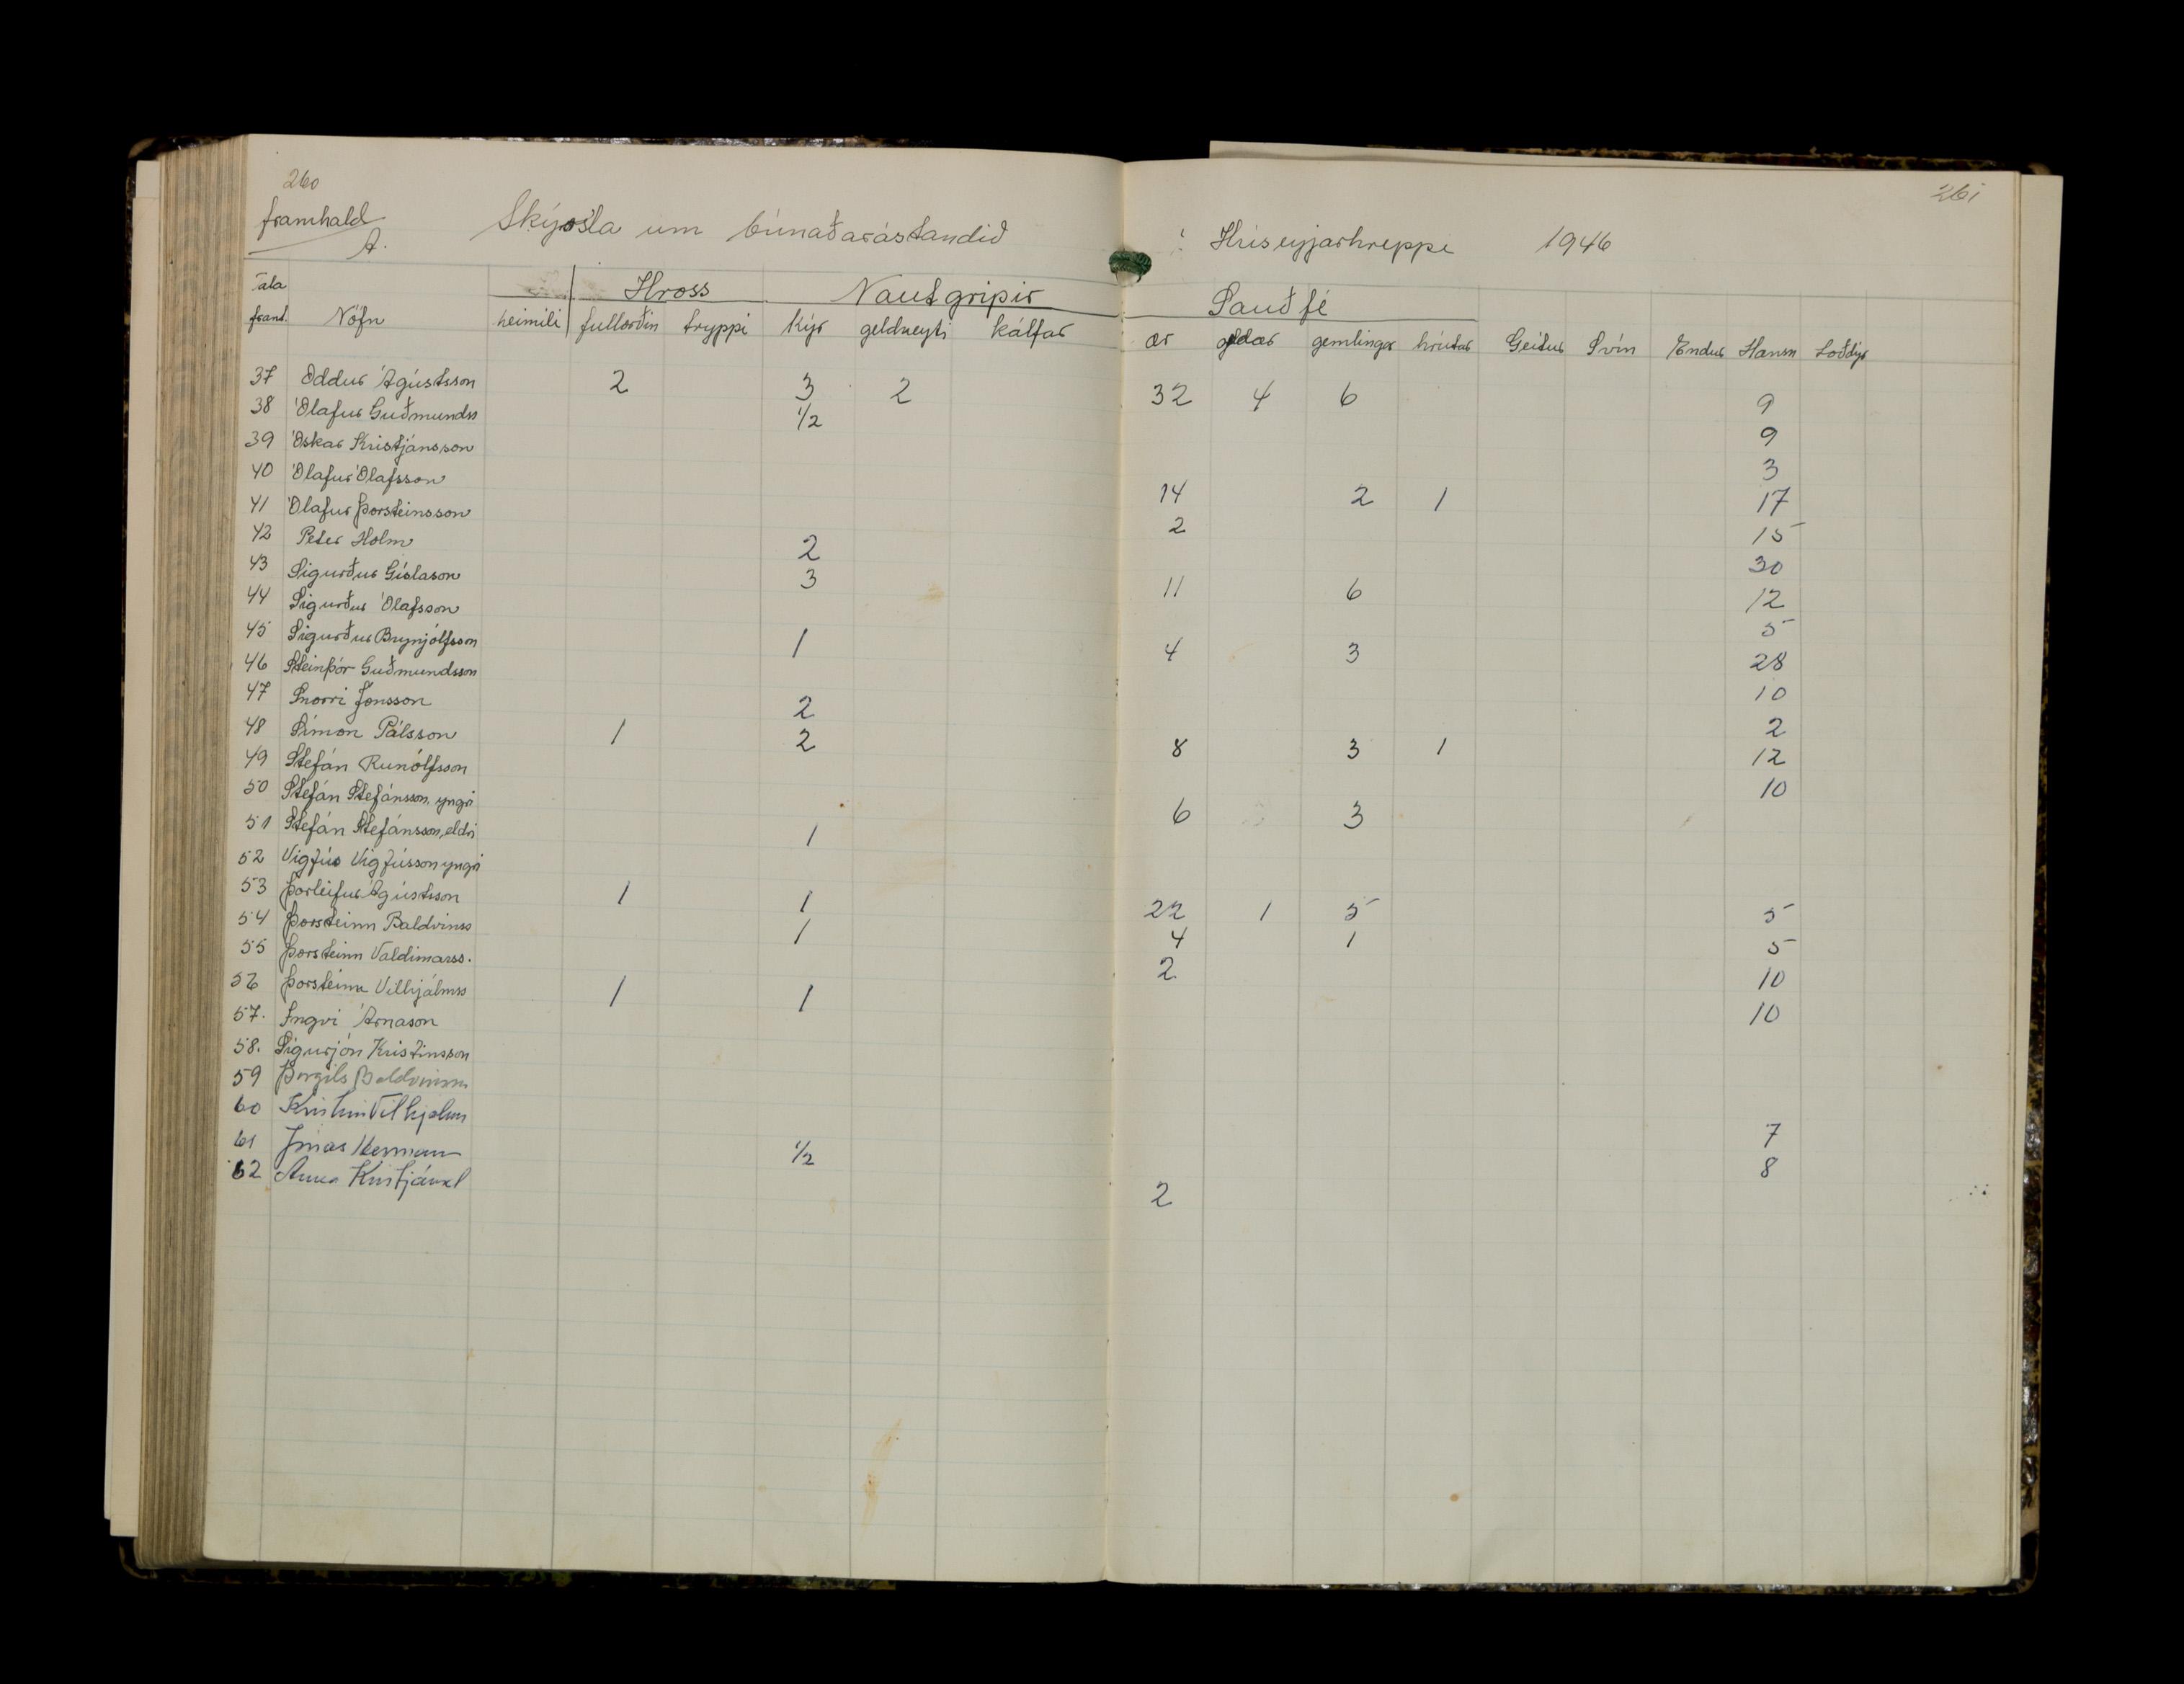 260
261
framhald
A.
Skýrsla um búnaðarástandið í Hríseyjarhreppi 1946
Hross Nautgripir Sauðfé
Nöfn heimili fullorðin tryppi kýr geldneyti kálfar ær gemlingar hrútar Geitur Svín Endur Hænsn Loðdýr
37 Oddur Ágústsson 2 3 2 32 4 6 9
38 Ólafur Guðmundss 1/2 9
39 Óskar Kristjánsson 3
40 Ólafur Ólafsson 14 2 1 17
41 Ólafur Þorsteinsson 2 15
42 Peter Holm 2 30
43 Sigurður Gíslason 3 11 6 12
44 Sigurður Ólafsson 5
45 Sigurður Brynjólfsson 1 4 3 28
46 Steinþór Guðmundsson 10
47 Snorri Jónsson 2 2
48 Símon Pálsson 1 2 8 3 1 12
49 Stefán Runólfsson 10
50 Stefán Stefánsson, yngri 6 3
51 Stefán Stefánsson, eldri 1
52 Vigfús Vigfússon yngri
53 Þorleifur Ágústsson 1 1 22 1 5 5
54 Þorsteinn Baldvinss 1 4 1 5
55 Þorsteinn Valdimarss. 2 10
56 Þorsteinn Vilhjálmss 1 1 10
57. Ingvi Árnason
58. Sigurjón Kristinsson
59 Þorgils Baldvinss
60 Kristinn Vilhjalms 7
61 Jónas Hermann 1/2 8
62 Anna Kristjánsd 2